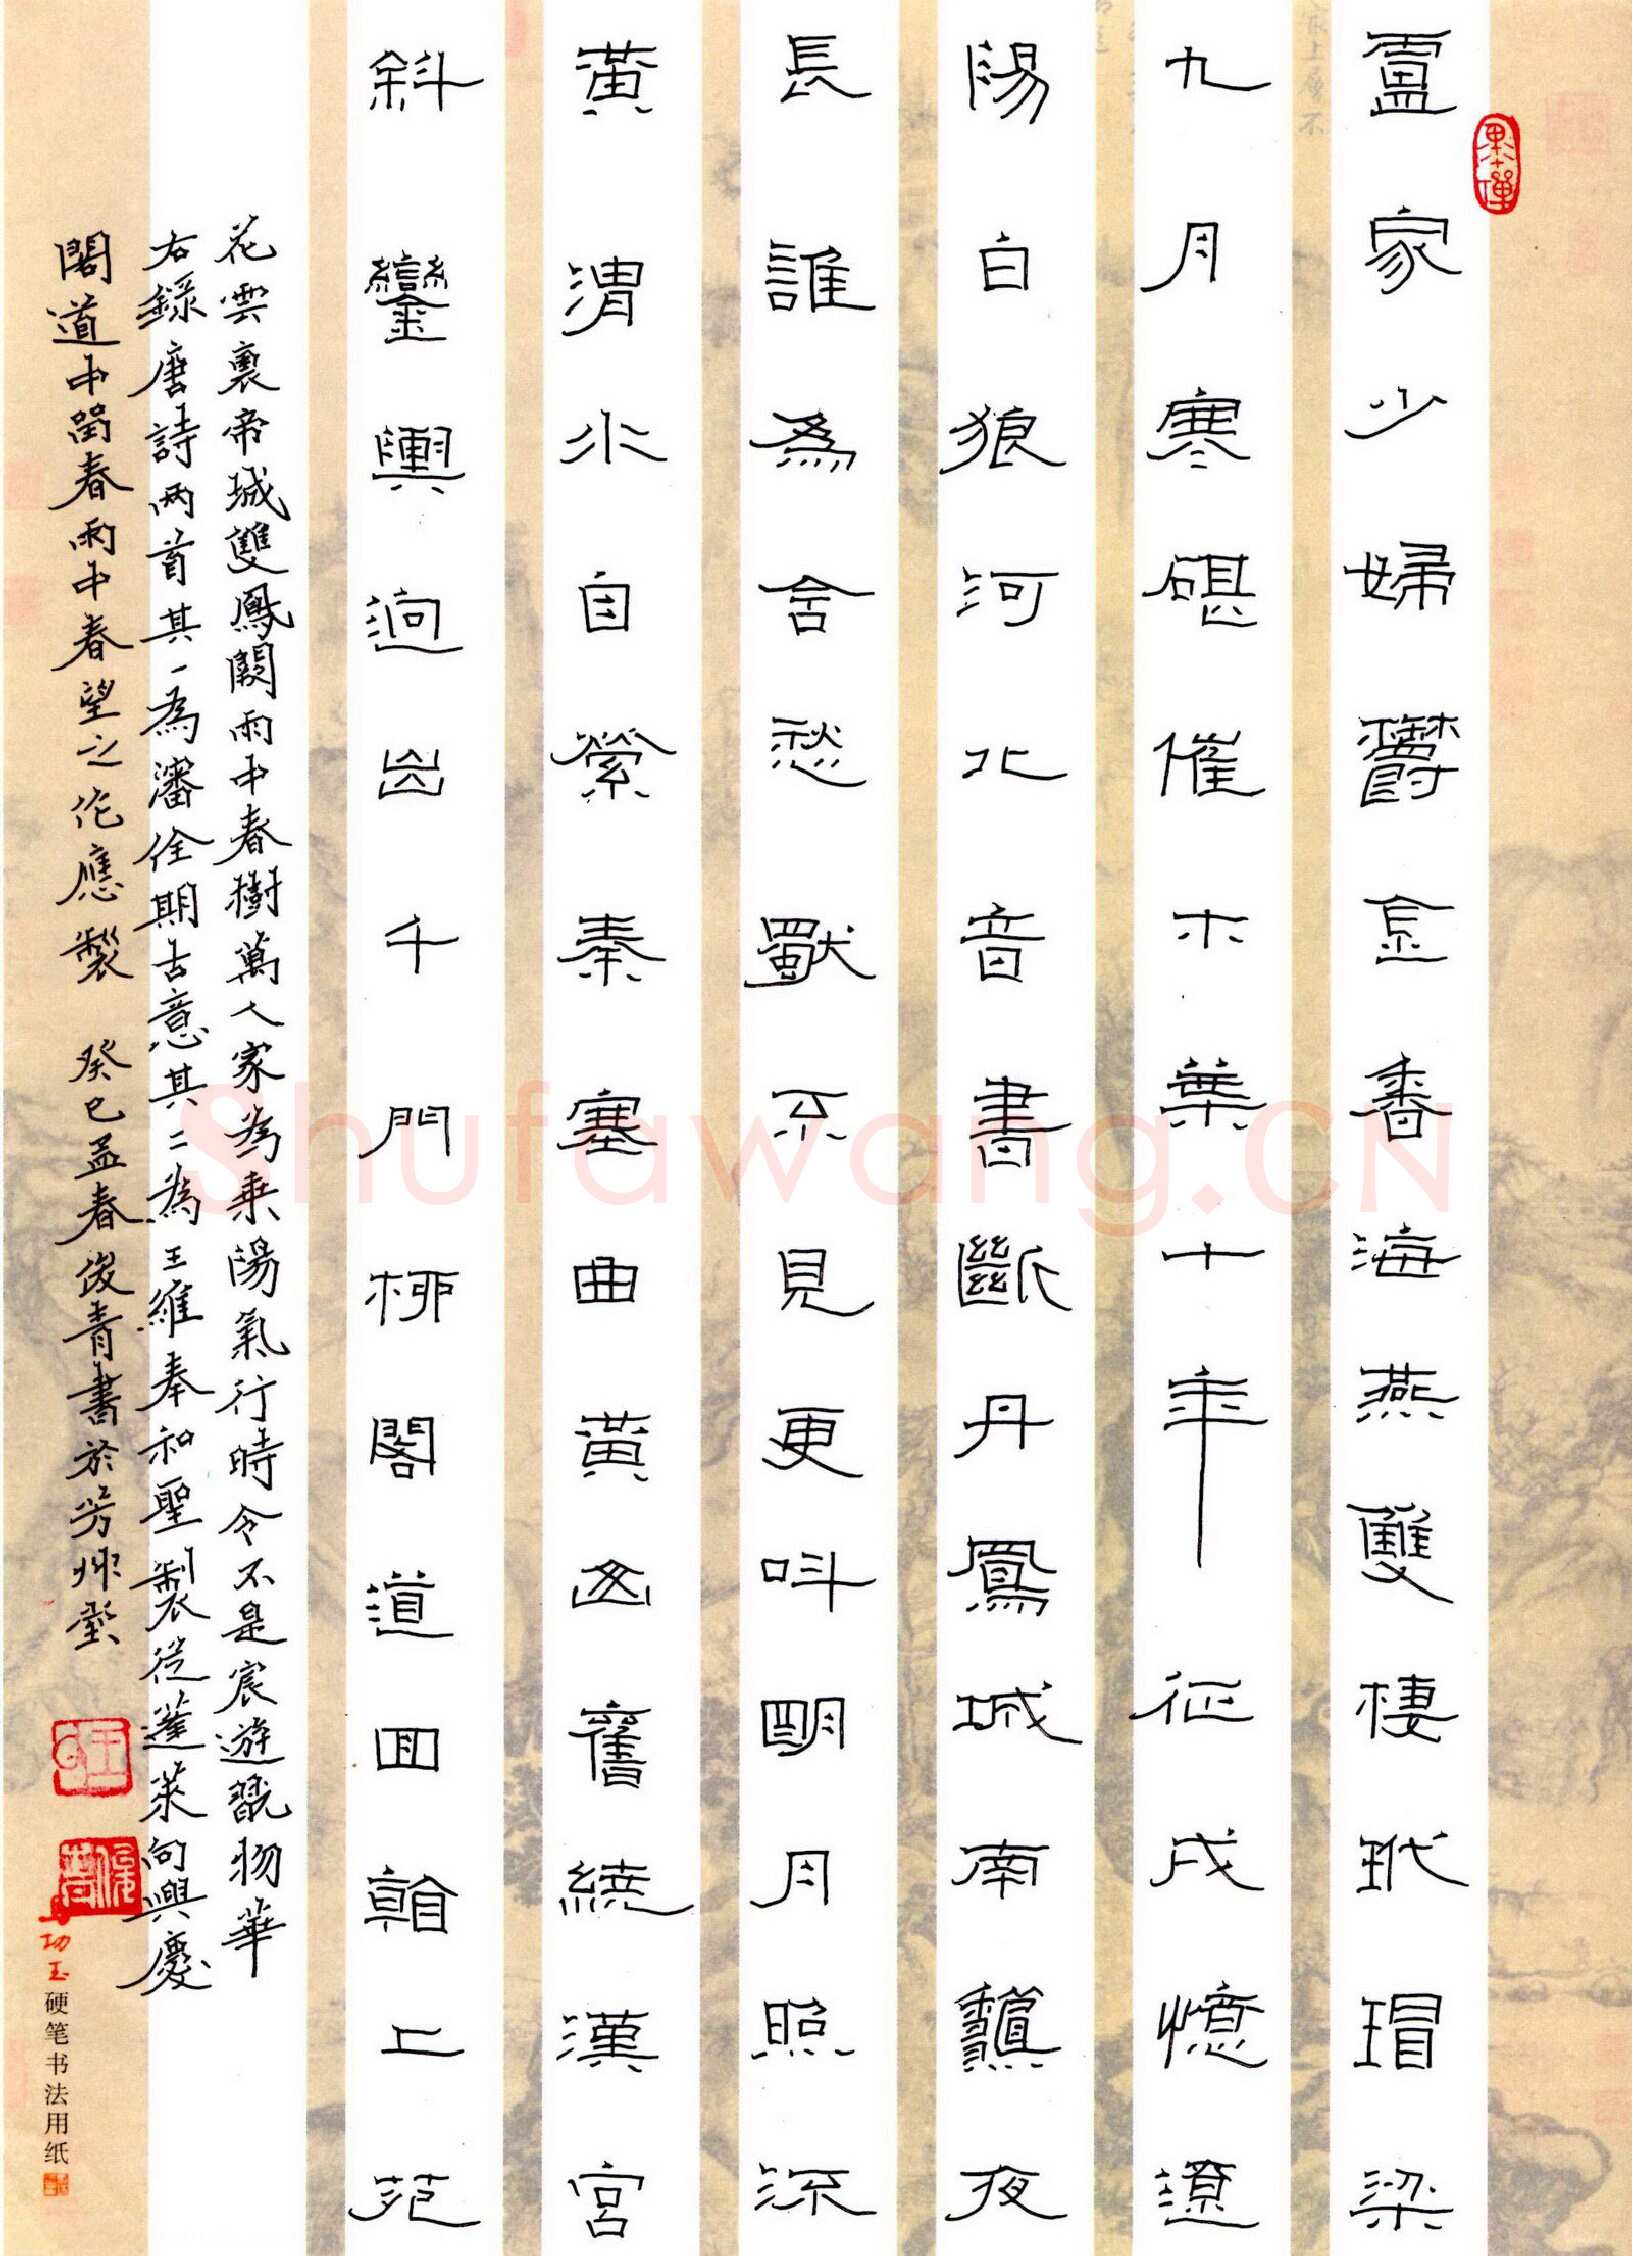 盧家少婦鬱金香海燕雙棲玳瑁梁
九月寒碪催木葉十年征戍憶遼
陽白狼河北音書斷丹鳳城南龝夜
長誰為含愁獨不見更呌明月照流
黃渭水自縈秦塞曲黃山舊繞漢宮
斜鑾輿迥出千門柳閣道回翰上苑
花雲裏帝城雙鳳闕雨中春樹萬人家為乘陽氣行時令不是宸遊翫物華
右錄唐詩兩首其一為瀋佺期古意其二為王維奉和聖製從蓬萊向興慶
閣道中留春雨中春望之作應製 癸巳孟春俊青書於芳草堂
硬笔书法用纸
Shufawang.CN